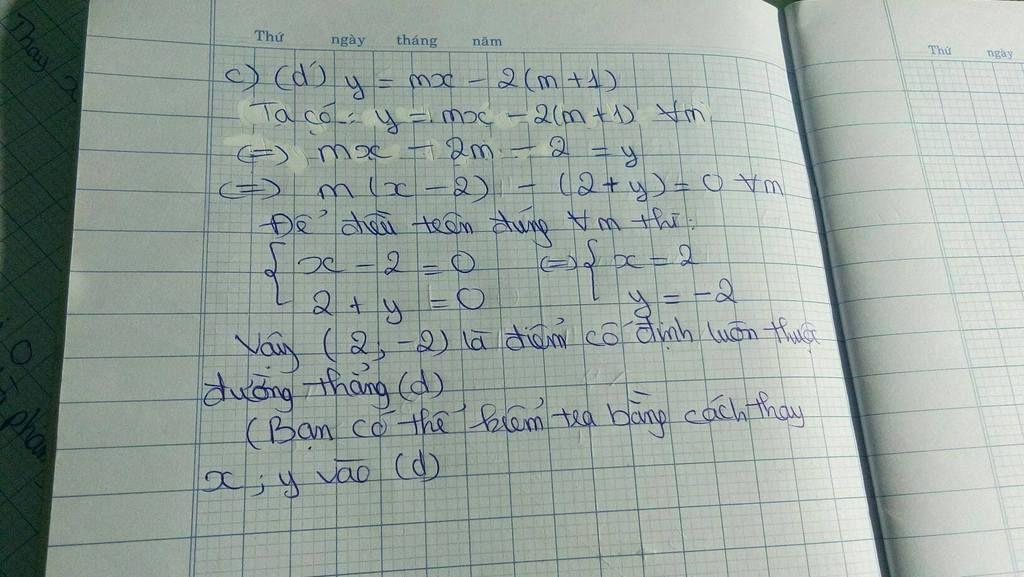 Thứ ngày tháng năm
Thứ ngày
Thay 2
c) (d) y = mx - 2(m+1)
Ta có: y = mx - 2(m+1) ∀m
(=) mx - 2m - 2 = y
(=) m(x - 2) - (2+y) = 0 ∀m
Để điều trên đúng ∀m thì:
{ x - 2 = 0 (=) { x = 2
2 + y = 0 y = -2
Vậy (2; -2) là điểm cố định luôn thuộc
đường thẳng (d)
(Bạn có thể kiểm tra bằng cách thay
x ; y vào (d)